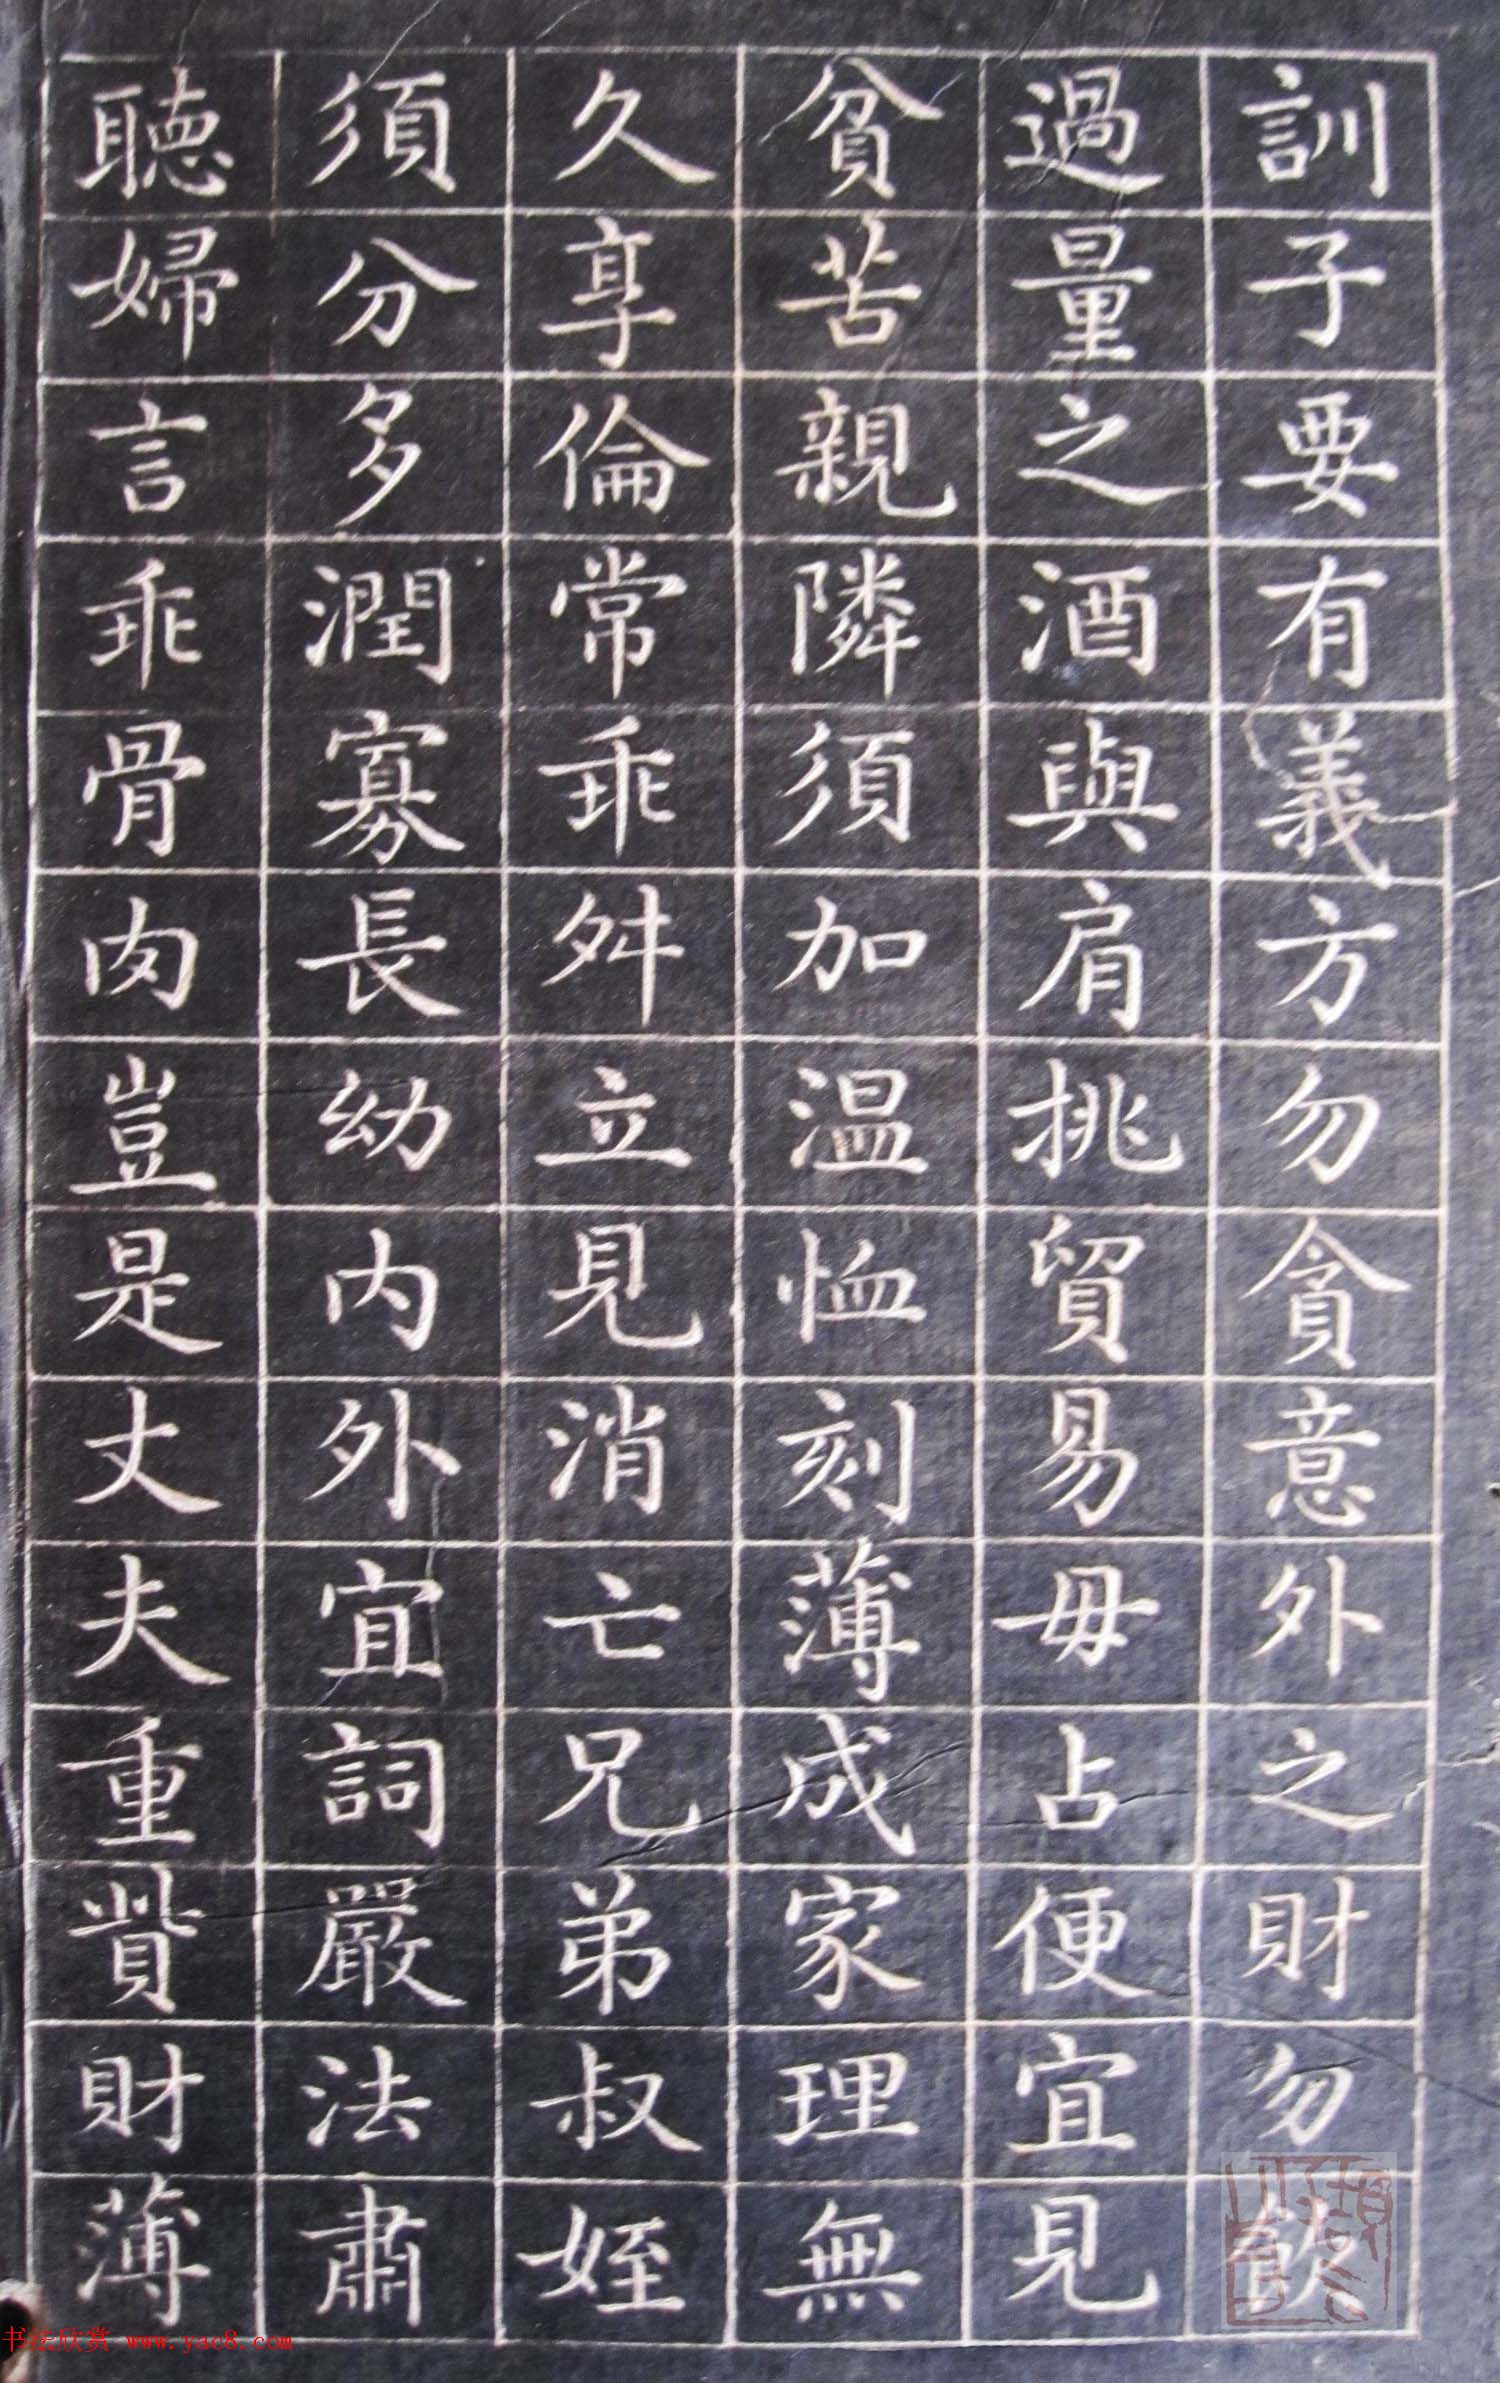 訓子要有義方勿貪意外之財勿飲
過量之酒與肩挑貿易毋占便宜見
貧苦親隣須加温恤刻薄成家理無
久享倫常乖舛立見消亡兄弟叔姪
須分多潤寡長幼内外宜詞嚴法肅
聽婦言乖骨肉豈是丈夫重貲財薄
书法欣赏 www.yac8.com